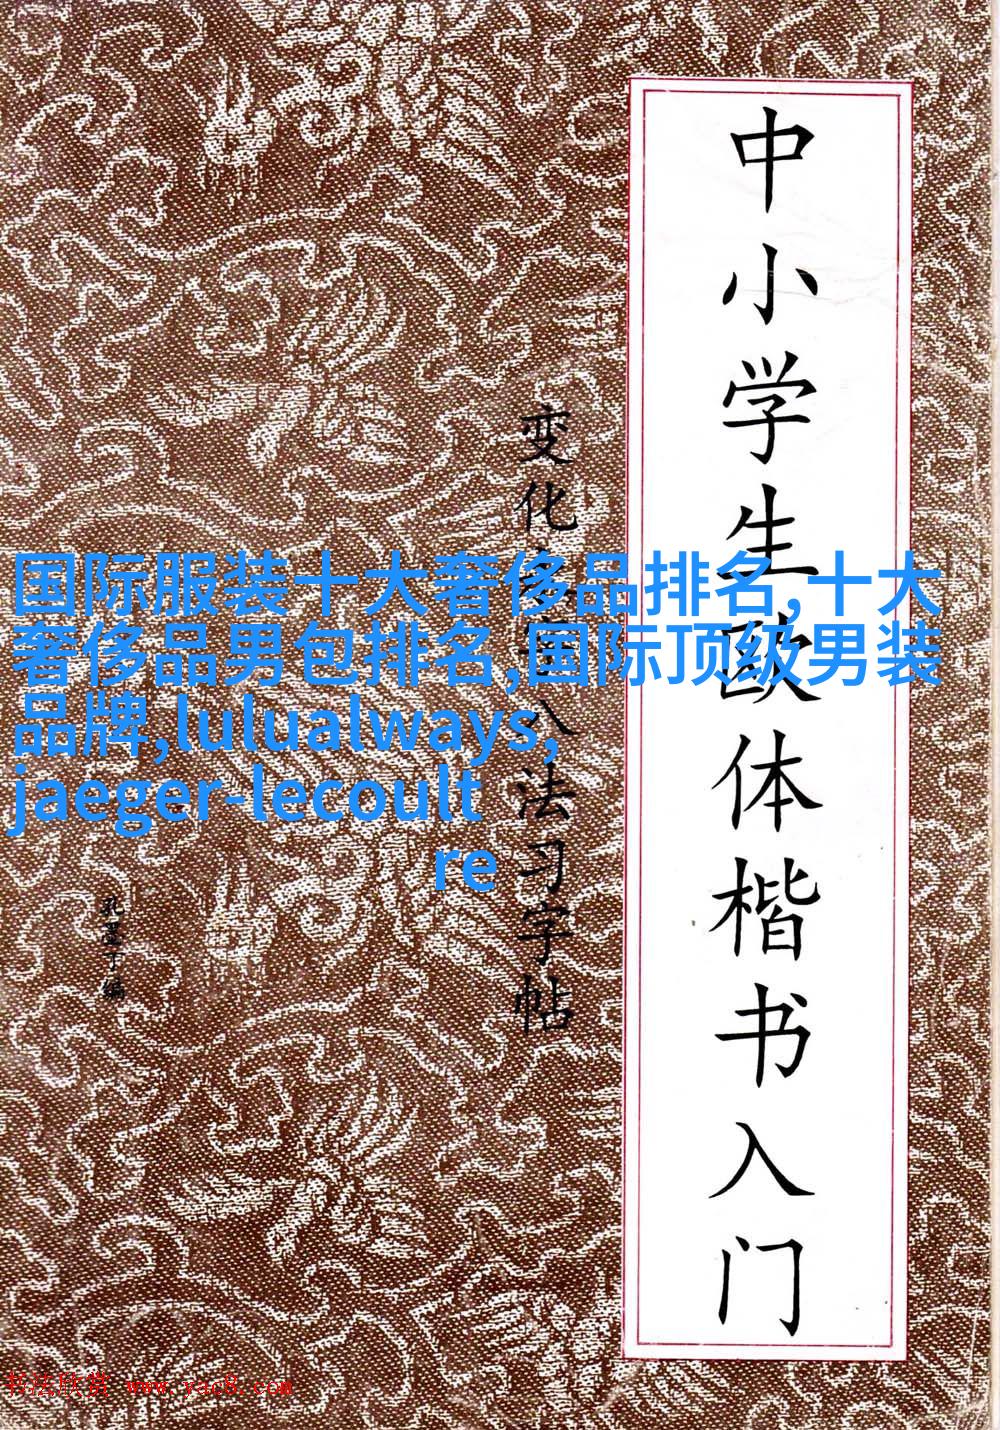 中小学生欧体楷书入门
变化八法习字帖
孔墨丁编
国际服装十大奢侈品排名,十大
奢侈品男包排名,国际顶级男装
品牌,lulualways,
jaeger-lecoult
re
书法欣赏 www.yac8.com